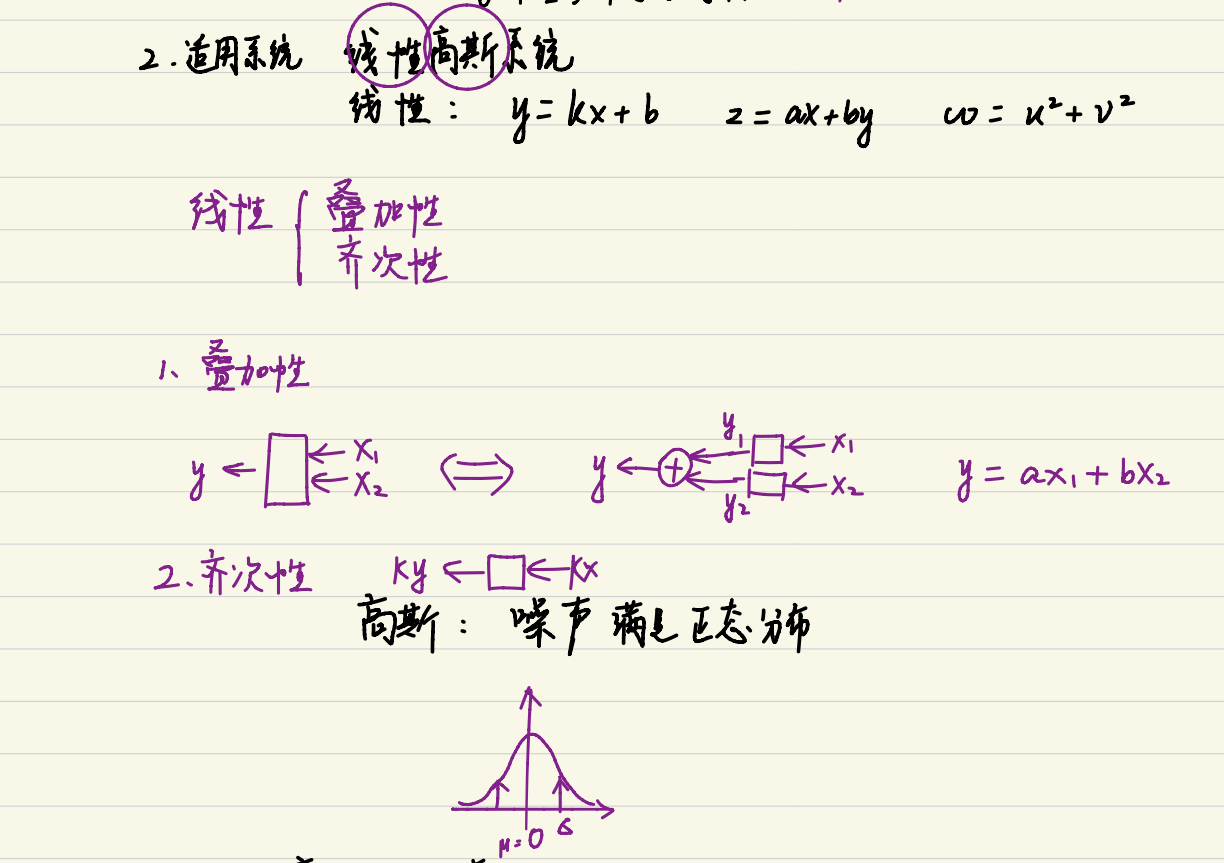 2.适用系统 线性高斯系统
线性: y=kx+b z=ax+by w=u²+v²
线性{叠加性
齐次性
1、叠加性
y ← x₁ x₂ ⟺ y ← ⊕ y₁ ← x₁ y₂ ← x₂ y=ax₁+bx₂
2.齐次性 ky ← □ ← kx
高斯: 噪声满足正态分布
μ=0 σ